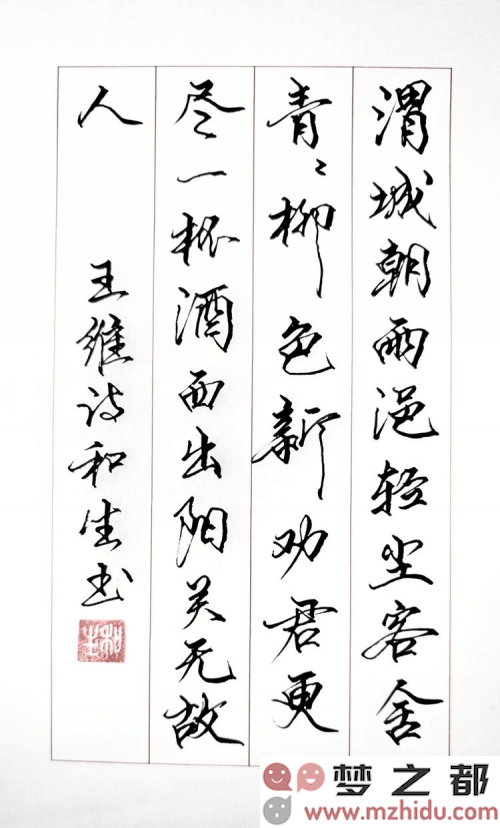 渭城朝雨浥轻尘客舍
青々柳色新劝君更
尽一杯酒西出阳关无故
人
王维诗和生书
和生
梦之都
www.mzhidu.com